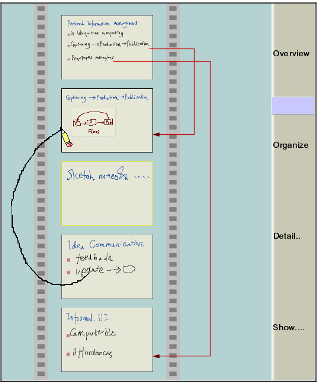 Personal Information management
in Ubiquitous computing
Capturing → Production → Publication
Capturing → Production → Publication
Flow
Sketch notes ....
Idea Communication
feedback
update →
Informal UI
Computer
Affordances
Overview
Organize
Detail..
Show....